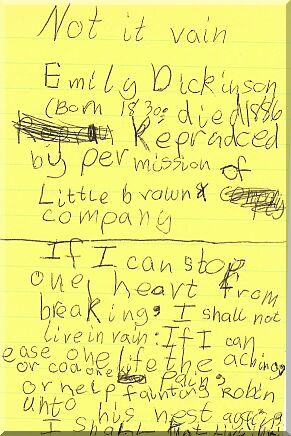 Not it vain
Emily Dickinson
(Born 1830: died 1886
Repradced
by permission of
Little brown &
company
If I can stop
one heart from
breaking: I shall not
live in vain: If I can
ease one life the aching
or coa one pain,
or help fainting Robin
unto his nest again
I shall not live in